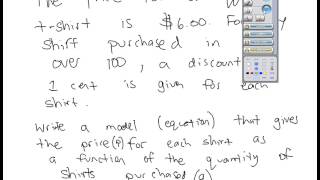 The price
t-shirt is $6.00. For
shirt purchased in
over 100, a discount
1 cent is given for each
shirt.
Write a model (equation) that gives
the price(P) for each shirt as
a function of the quantity of
shirts purchased (q)